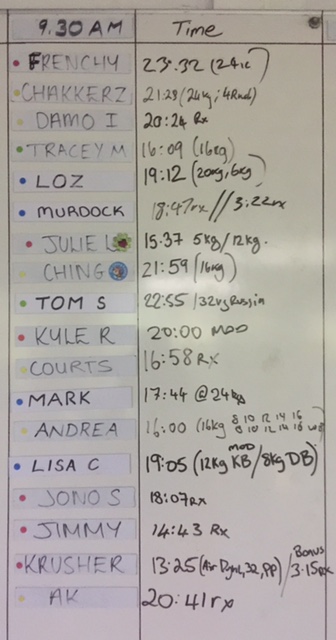 9.30 AM Time
FRENCHY 23:32 (24k)
CHAKKERZ 21:28 (24kg; 4Rnd)
DAMO I 20:24 Rx
TRACEY M 16:09 (16kg)
LOZ 19:12 (20kg, 6kg)
MURDOCK 18:47rx // 3:22rx
JULIE L 15:37 5kg/12kg.
CHING 21:59 (16kg)
TOM S 22:55 /32kg Russin
KYLE R 20:00 MOD
COURTS 16:58 RX
MARK 17:44 @24kg
ANDREA 16:00 (16kg 8 10 12 14 16
8 10 12 14 16
LISA C 19:05 (12kg KB/8kg DB) MOD
JONO S 18:07RX
JIMMY 14:43 Rx
KRUSHER 13:25 (Air Dyne, 32, PP) / Bonus 3:15Rx
AK 20:41rx